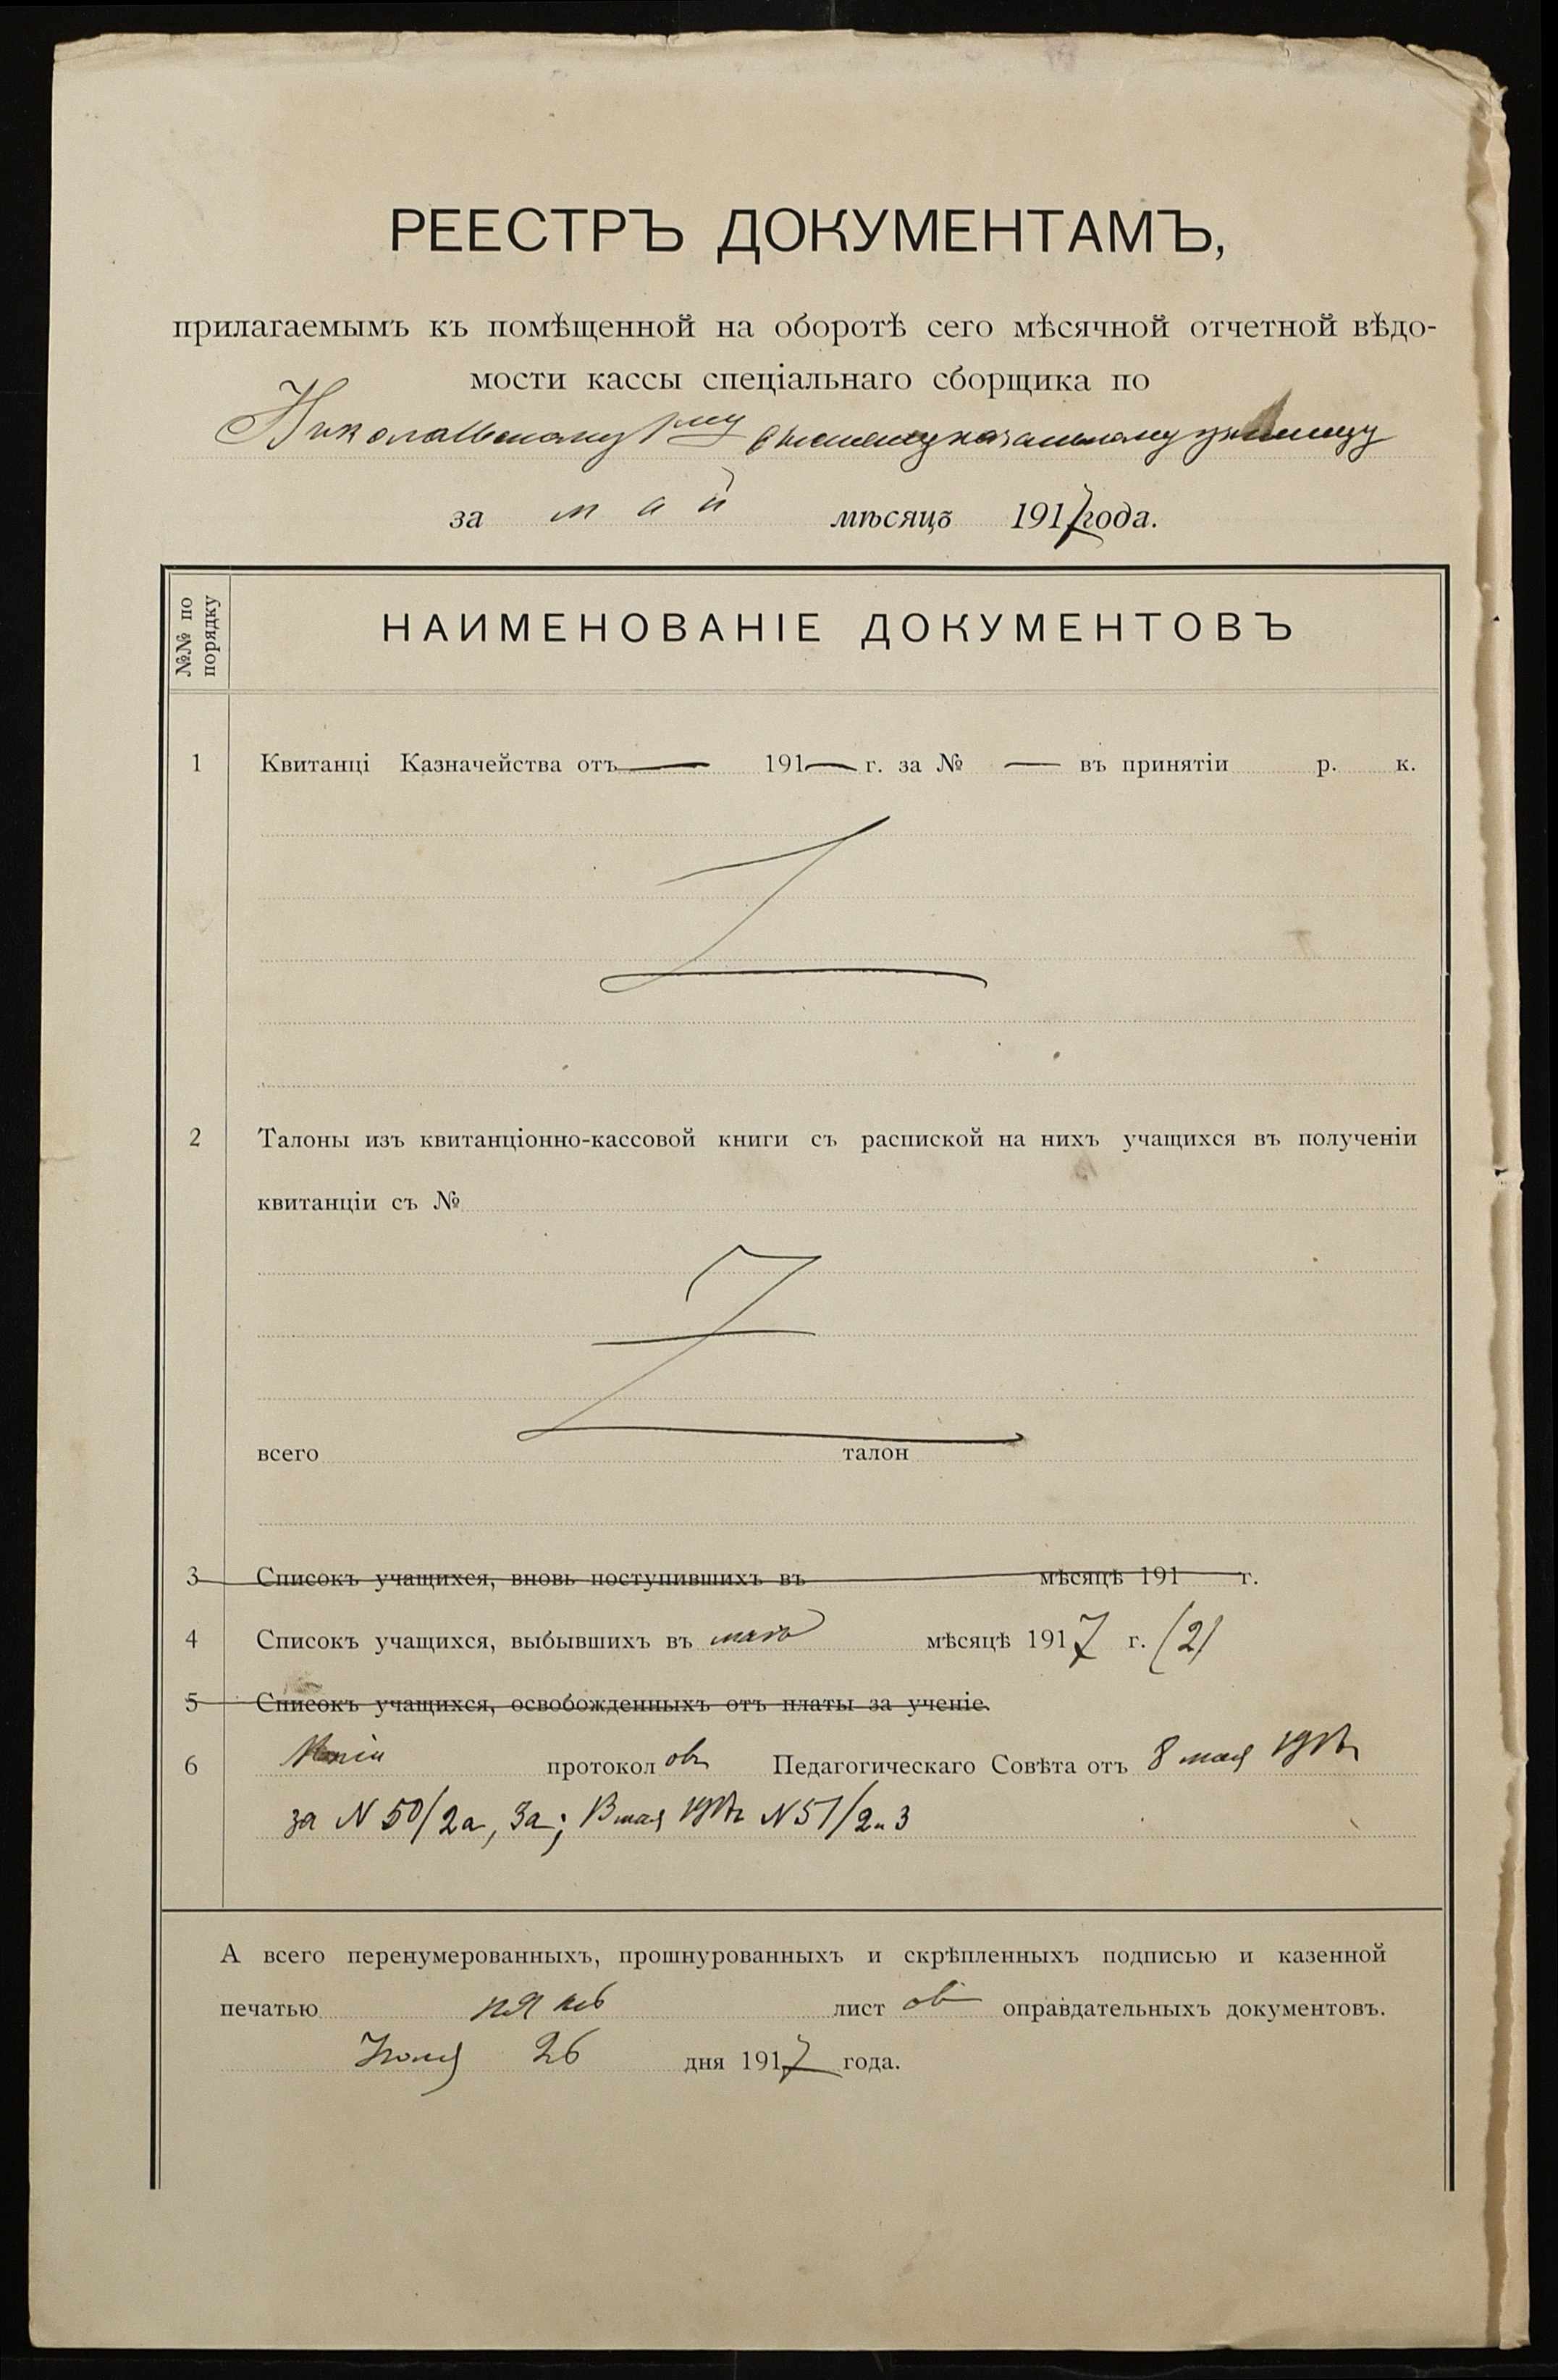 РЕЕСТРЪ ДОКУМЕНТАМЪ,
прилагаемымъ къ помѣщенной на оборотѣ сего мѣсячной отчетной вѣдо-
мости кассы спеціальнаго сборщика по
Николаевскому 1му высшему начальному училищу
за май мѣсяцъ 1917 года.
№№ по порядку
НАИМЕНОВАНІЕ ДОКУМЕНТОВЪ
1 Квитанці Казначейства отъ — 191— г. за № — въ принятіи р. к.
2 Талоны изъ квитанціонно-кассовой книги съ распиской на нихъ учащихся въ полученіи
квитанціи съ №
всего талон
3 Списокъ учащихся, вновь поступившихъ въ мѣсяцѣ 191 г.
4 Списокъ учащихся, выбывшихъ въ маѣ мѣсяцѣ 1917 г. (2)
5 Списокъ учащихся, освобожденныхъ отъ платы за ученіе.
6 Копіи протоколовъ Педагогическаго Совѣта отъ 8 мая 1917г
за N 50/2а, 3а; мая 1917г N 51/2 и 3
А всего перенумерованныхъ, прошнурованныхъ и скрѣпленныхъ подписью и казенной
печатью пять листовъ оправдательныхъ документовъ.
26 дня 1917 года.